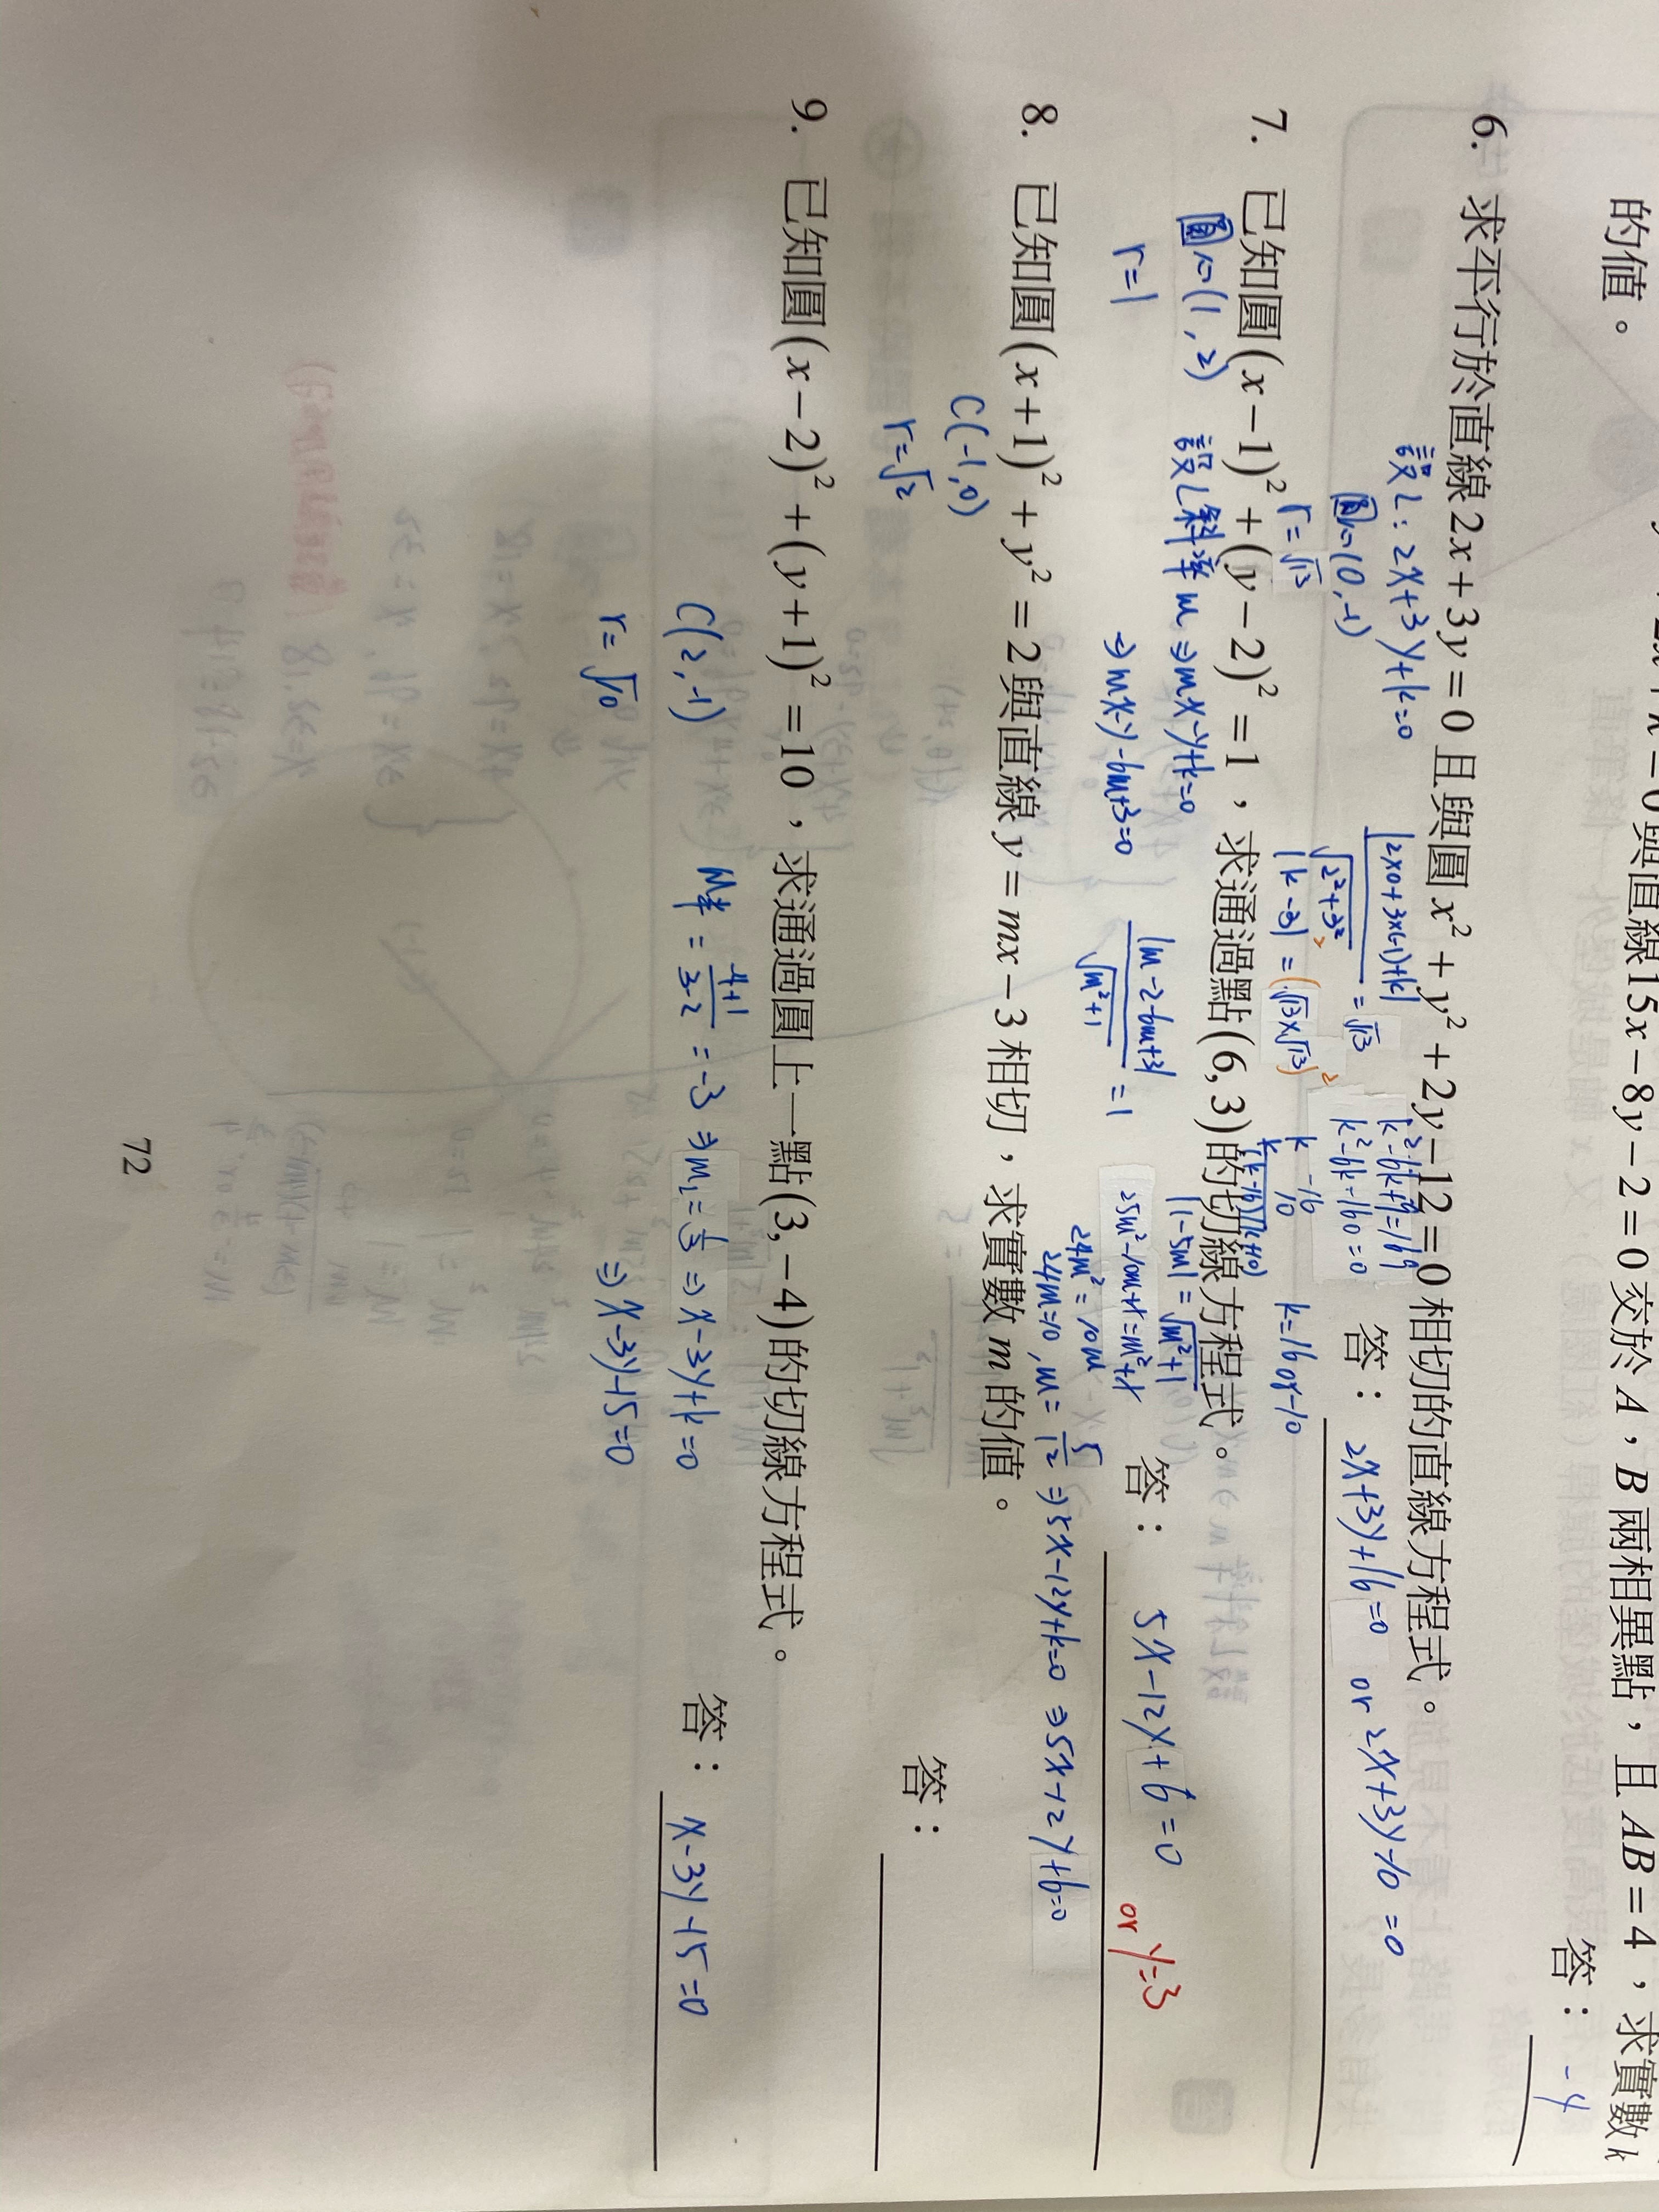 與直線15x−8y−2=0交於A，B兩相異點，且AB=4，求實數k
的值。
答：-4
6. 求平行於直線2x+3y=0且與圓x²+y²+2y−12=0相切的直線方程式。
設L：2x+3y+k=0
圓心(0,-1)
r=√13
|2×0+3×(-1)+k| / √(2²+3²) = √13
|k-3|² = (√13×√13)²
k²-6k+9=169
k²-6k-160=0
k -16
k 10
(k-16)(k+10)
k=16 or -10
答：2x+3y+16=0 or 2x+3y-10=0
7. 已知圓(x−1)²+(y−2)²=1，求通過點(6,3)的切線方程式。
圓心(1,2)
r=1
設L斜率m⇒mx-y+k=0
⇒mx-y-6m+3=0
|m-2-6m+3| / √(m²+1) = 1
|1-5m|=√(m²+1)
25m²-10m+1=m²+1
24m²=10m
24m=10, m=5/12 ⇒5x-12y+k=0 ⇒5x-12y+6=0
答：5x-12y+6=0 or y=3
8. 已知圓(x+1)²+y²=2與直線y=mx−3相切，求實數m的值。
C(-1,0)
r=√2
答：
9. 已知圓(x−2)²+(y+1)²=10，求通過圓上一點(3,−4)的切線方程式。
C(2,-1)
r=√10
m半=(-4+1)/(3-2)=-3⇒m切=1/3⇒x-3y+k=0
⇒x-3y-15=0
答：x-3y-15=0
72